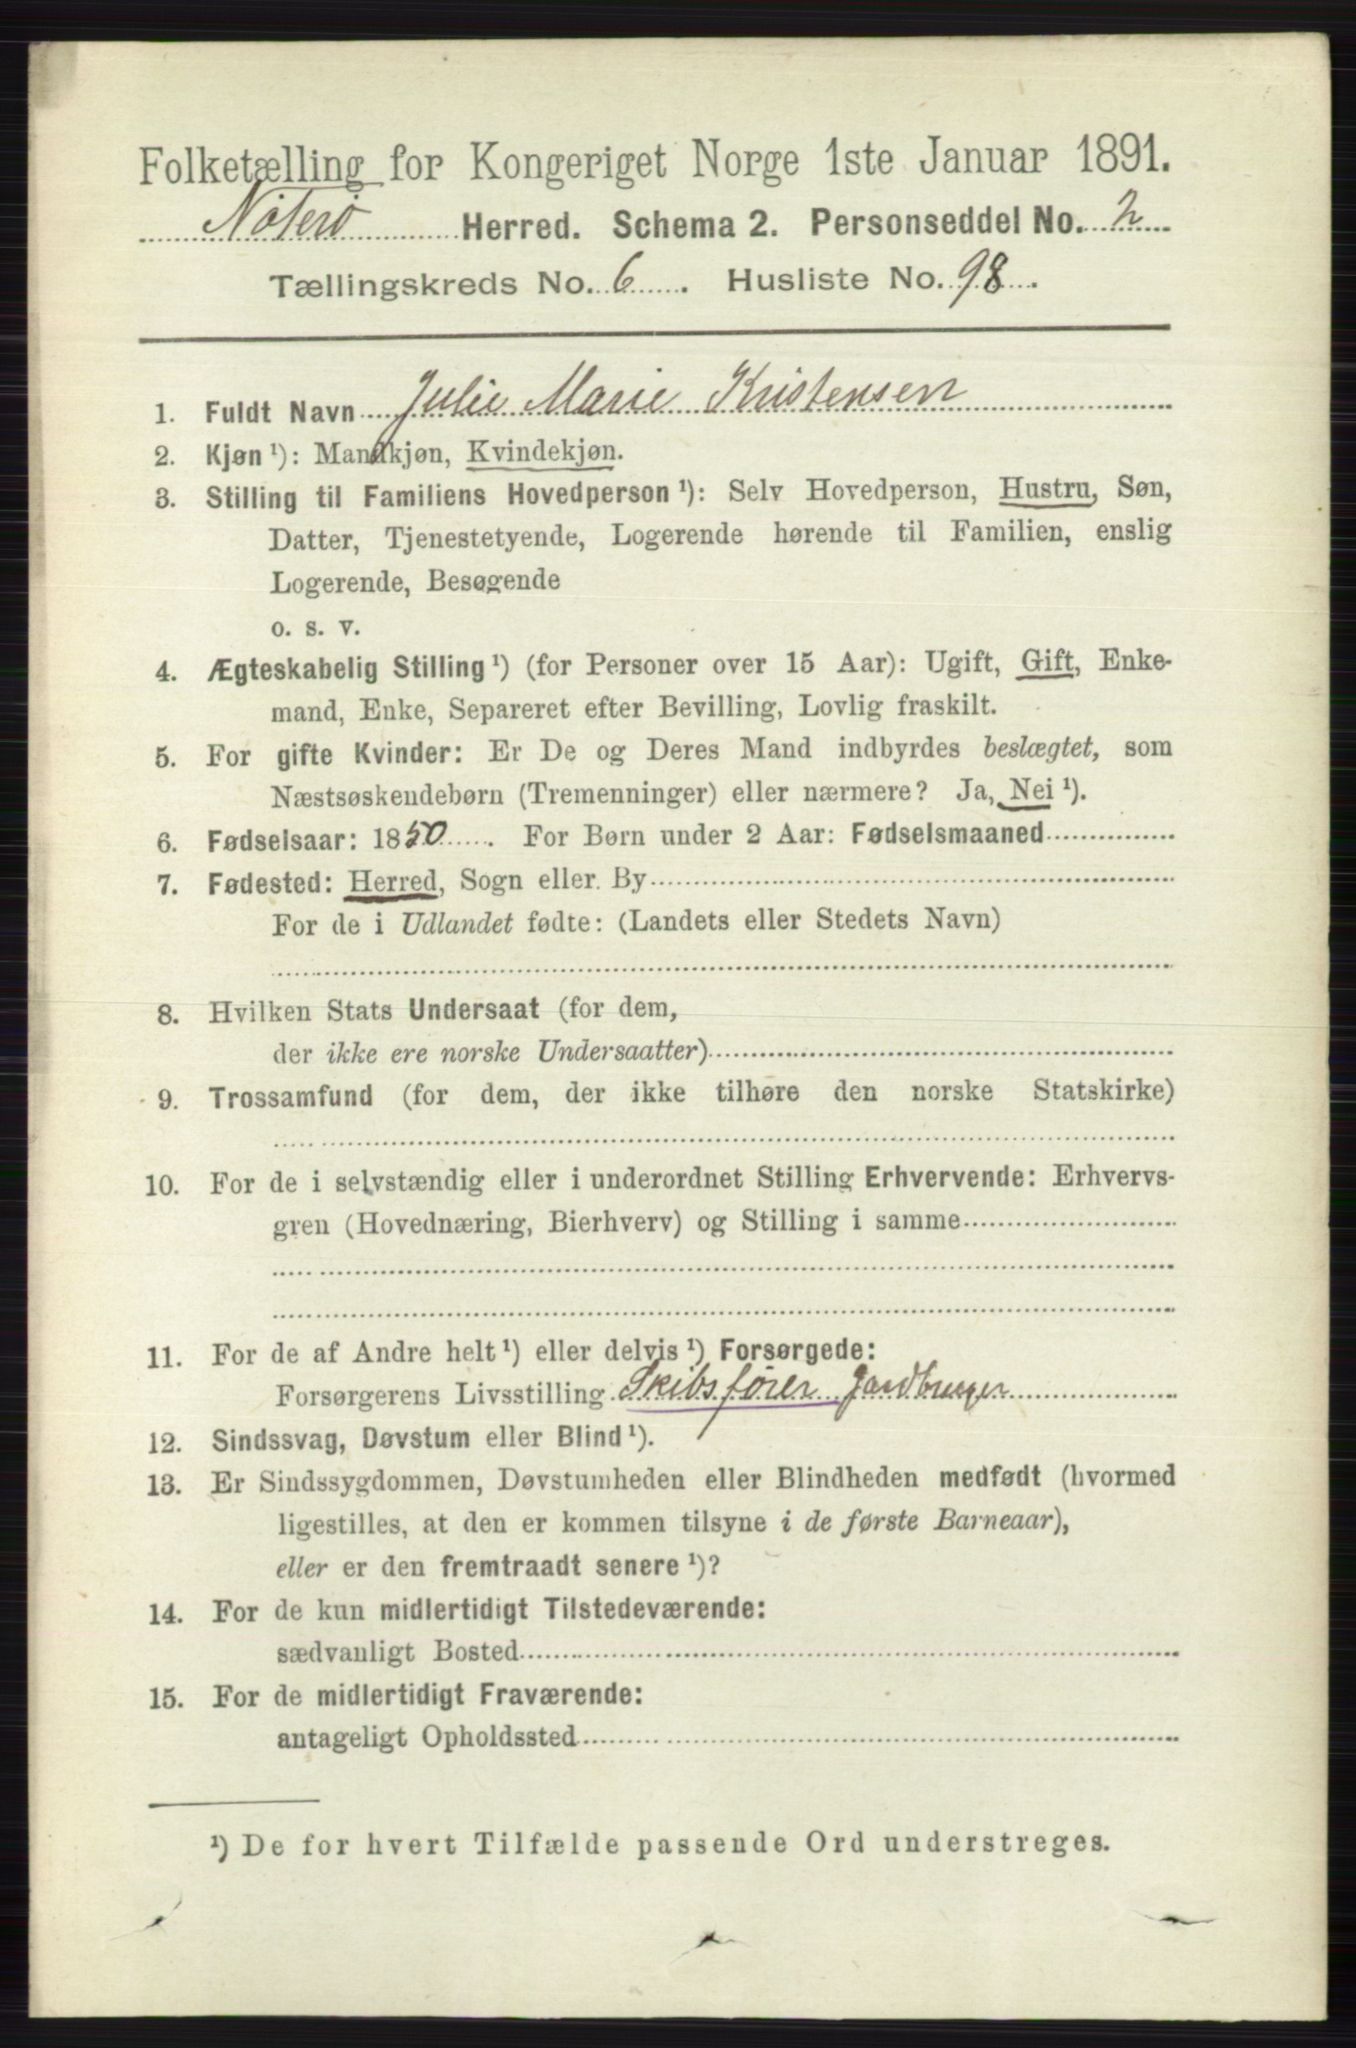 Folketælling for Kongeriget Norge 1ste Januar 1891.
Nøterø Herred. Schema 2. Personseddel No. 2
Tællingskreds No. 6. Husliste No. 98.
1. Fuldt Navn Julie Marie Kristensen
2. Kjøn ¹): Mandkjøn, Kvindekjøn.
3. Stilling til Familiens Hovedperson ¹): Selv Hovedperson, Hustru, Søn,
Datter, Tjenestetyende, Logerende hørende til Familien, enslig
Logerende, Besøgende
o. s. v.
4. Ægteskabelig Stilling ¹) (for Personer over 15 Aar): Ugift, Gift, Enke-
mand, Enke, Separeret efter Bevilling, Lovlig fraskilt.
5. For gifte Kvinder: Er De og Deres Mand indbyrdes beslægtet, som
Næstsøskendebørn (Tremenninger) eller nærmere? Ja, Nei ¹).
6. Fødselsaar: 1850. For Børn under 2 Aar: Fødselsmaaned
7. Fødested: Herred, Sogn eller By
For de i Udlandet fødte: (Landets eller Stedets Navn)
8. Hvilken Stats Undersaat (for dem,
der ikke ere norske Undersaatter)
9. Trossamfund (for dem, der ikke tilhøre den norske Statskirke)
10. For de i selvstændig eller i underordnet Stilling Erhvervende: Erhvervs-
gren (Hovednæring, Bierhverv) og Stilling i samme
11. For de af Andre helt ¹) eller delvis ¹) Forsørgede:
Forsørgerens Livsstilling Skibsfører Jordbruger
12. Sindssvag, Døvstum eller Blind ¹).
13. Er Sindssygdommen, Døvstumheden eller Blindheden medfødt (hvormed
ligestilles, at den er kommen tilsyne i de første Barneaar),
eller er den fremtraadt senere ¹)?
14. For de kun midlertidigt Tilstedeværende:
sædvanligt Bosted
15. For de midlertidigt Fraværende:
antageligt Opholdssted
¹) De for hvert Tilfælde passende Ord understreges.